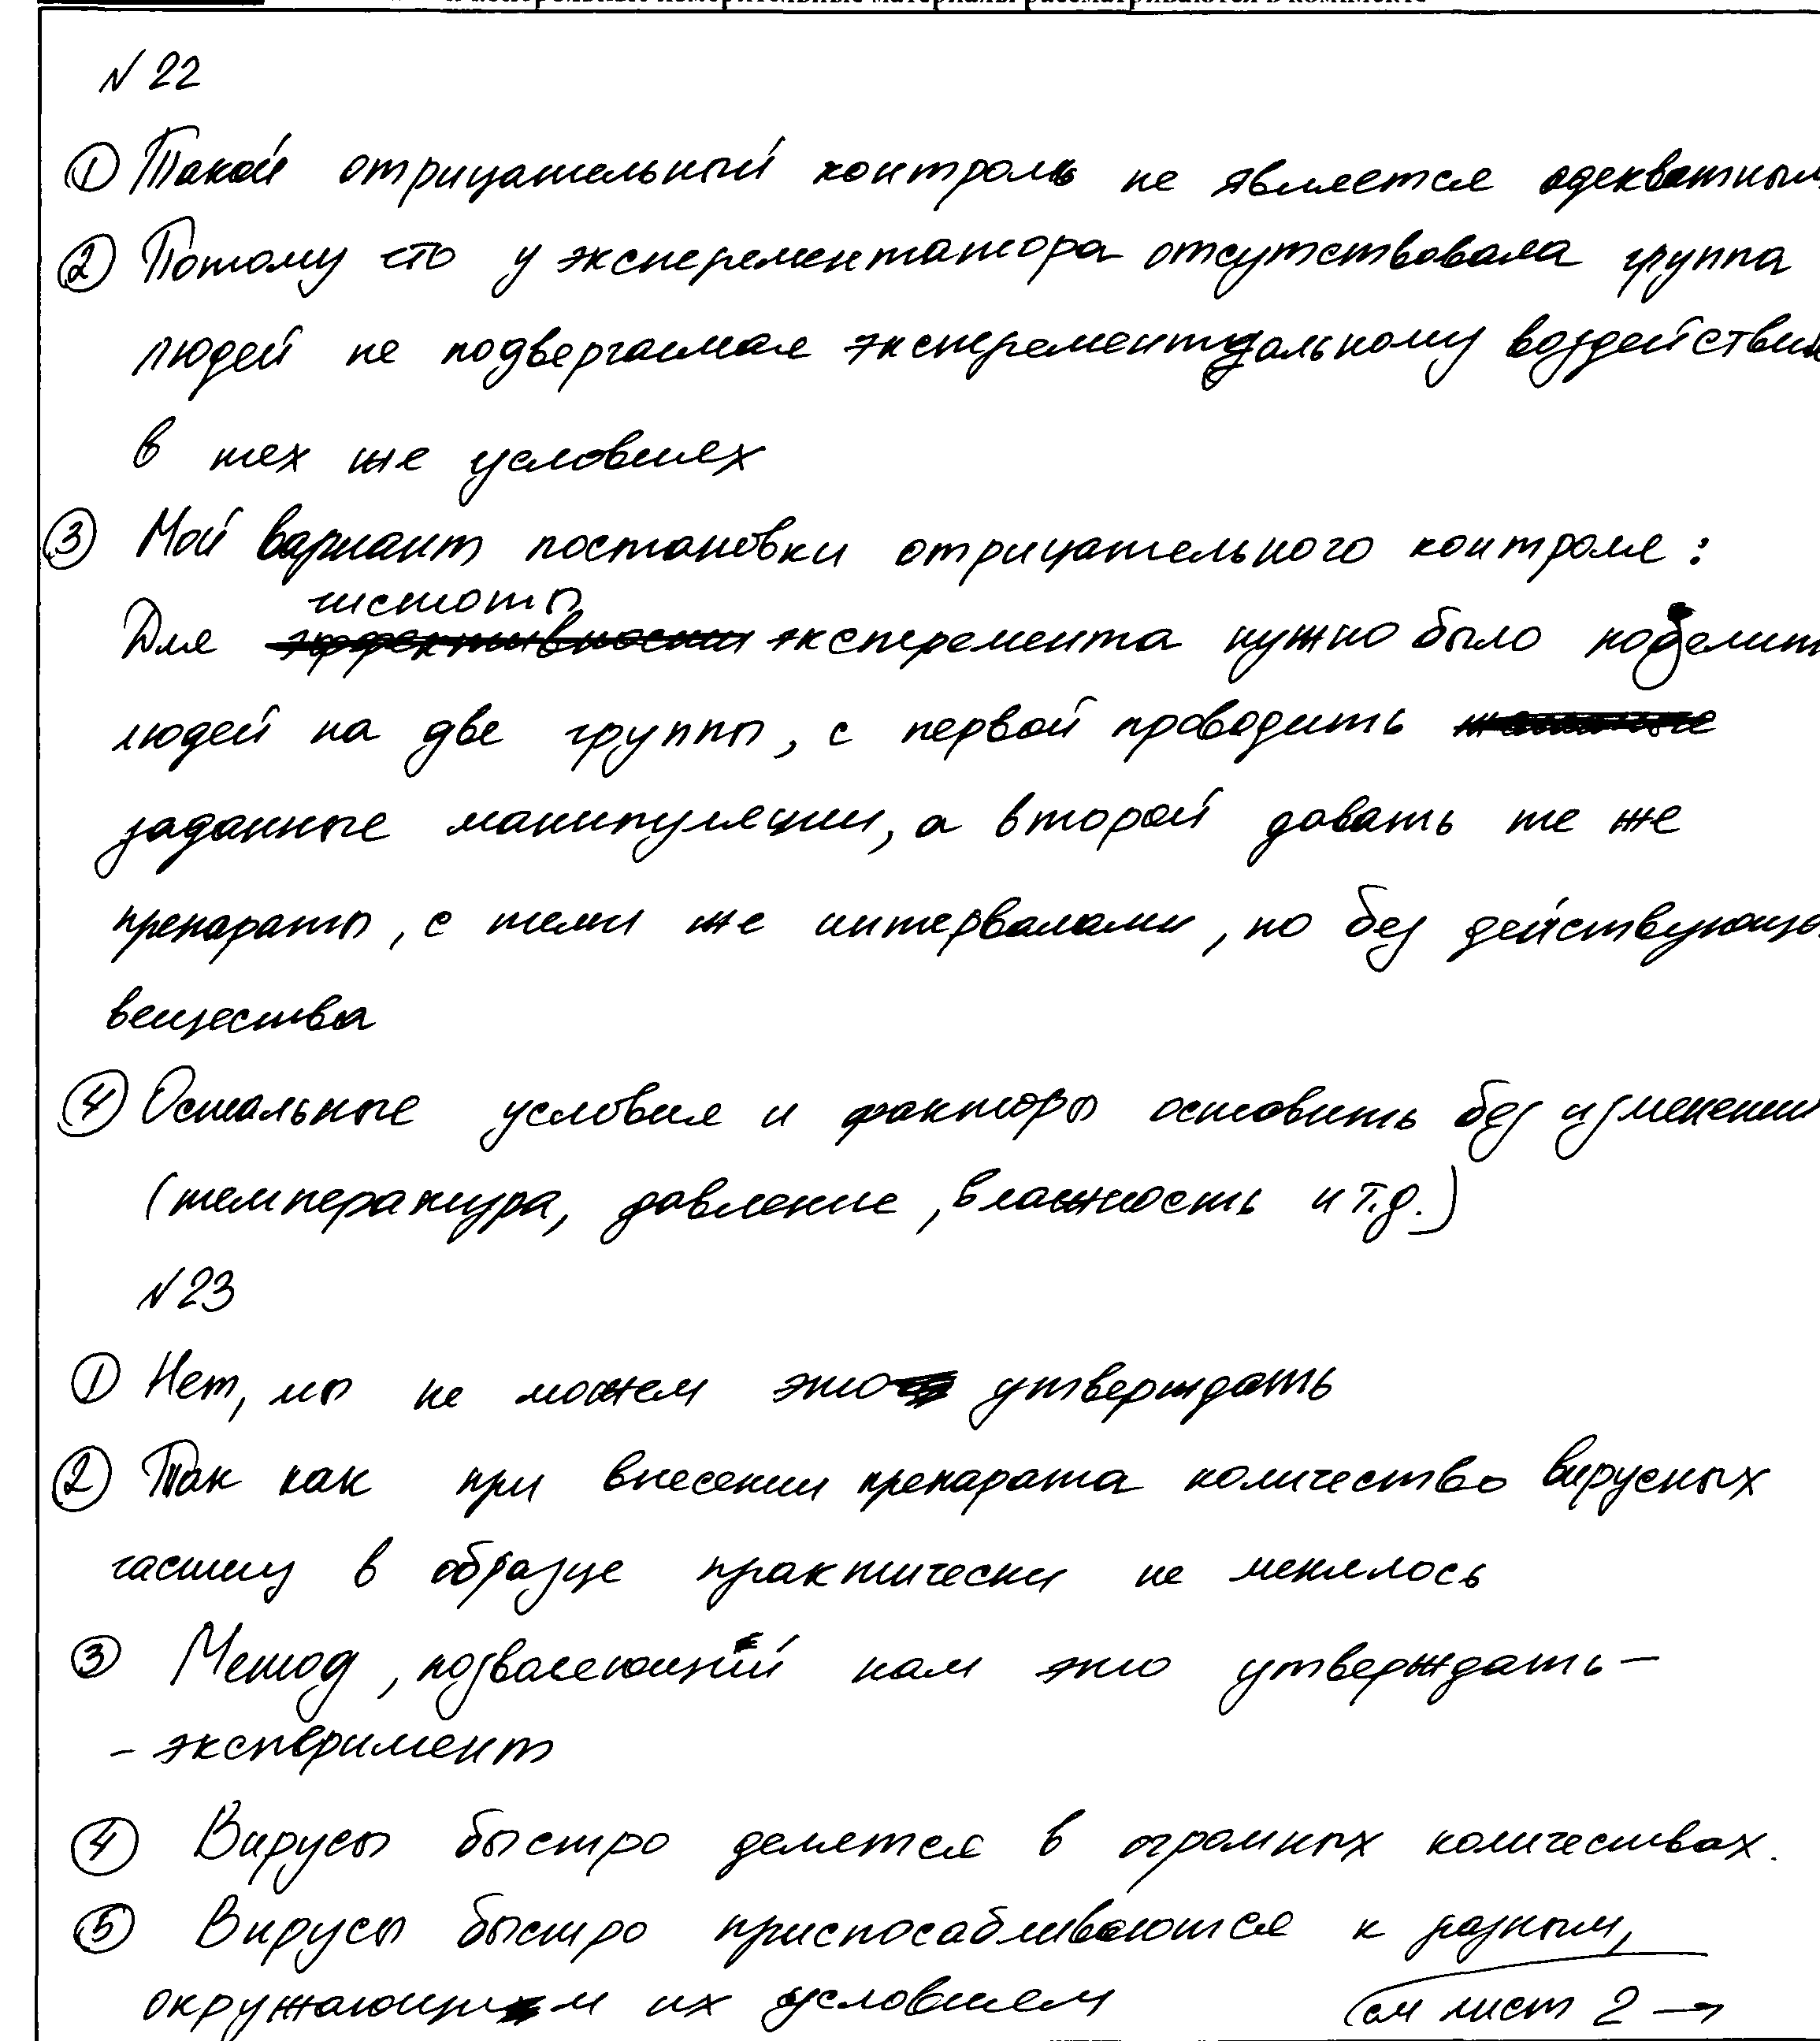 контрольные измерительные материалы рассматриваются в комплекте
N 22
① Такой отрицательный контроль не является адекватным
② Потому что у эксперементатора отсутствовала группа
людей не подвергаемая эксперементальному воздействию
в тех же условиях
③ Мой вариант постановки отрицательного контроля:
чистоты
Для эксперемента нужно было поделить
людей на две группы, с первой проводить
заданные манипуляции, а второй давать те же
препараты, с теми же интервалами, но без действующего
вещества
④ Остальные условия и факторы оставить без изменений
(температура, давление, влажность и т.д.)
N 23
① Нет, мы не можем это утверждать
② Так как при внесении препарата количество вирусных
частиц в образце практически не менялось
③ Метод, позволяющий нам это утверждать –
– эксперимент
④ Вирусы быстро делятся в огромных количествах.
⑤ Вирусы быстро приспосабливаются к разным,
окружающим их условиям
(см лист 2 →